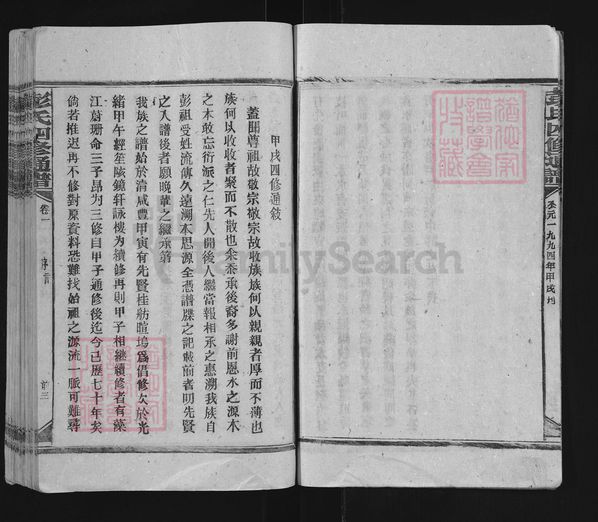 彭氏四修通譜
公元一九九四年甲戌月
猶他家譜學會特藏
FamilySearch
甲戌四修通敘
蓋聞尊祖故敬宗敬宗故收族族何以親親者厚而不薄也
族何以收收者聚而不散也氽忝承後裔多謝前恩水之源木
之本敢忘衍派之仁先人開後人繼當報相承之惠溯我族自
彭祖受姓流傳久遠溯本思源全憑譜牒之記載前者明先賢
之入譜後者願晚輩之繼承第
我族之譜始於清咸豐甲寅有先賢桂舫暄塢爲倡修次於光
緒甲午經笙陔鏡軒詠樓爲續修再則甲子相繼續修者有藻
江蔚珊命三子昂爲三修曰甲子通修後迄今已歷七十年矣
倘若推迟再不修對原資料恐難找始祖之源流一脈可難尋
彭氏四修通譜
卷一
序言
前三